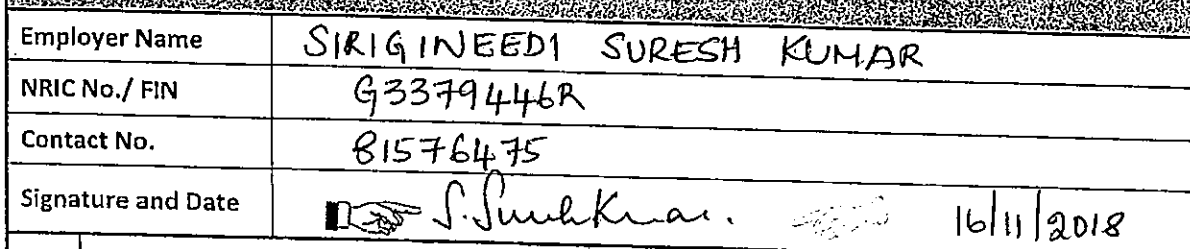 Employer Name SIRIGINEEDI SURESH KUMAR
NRIC No./ FIN G3379446R
Contact No. 81576475
Signature and Date S. Suresh Kumar. 16/11/2018